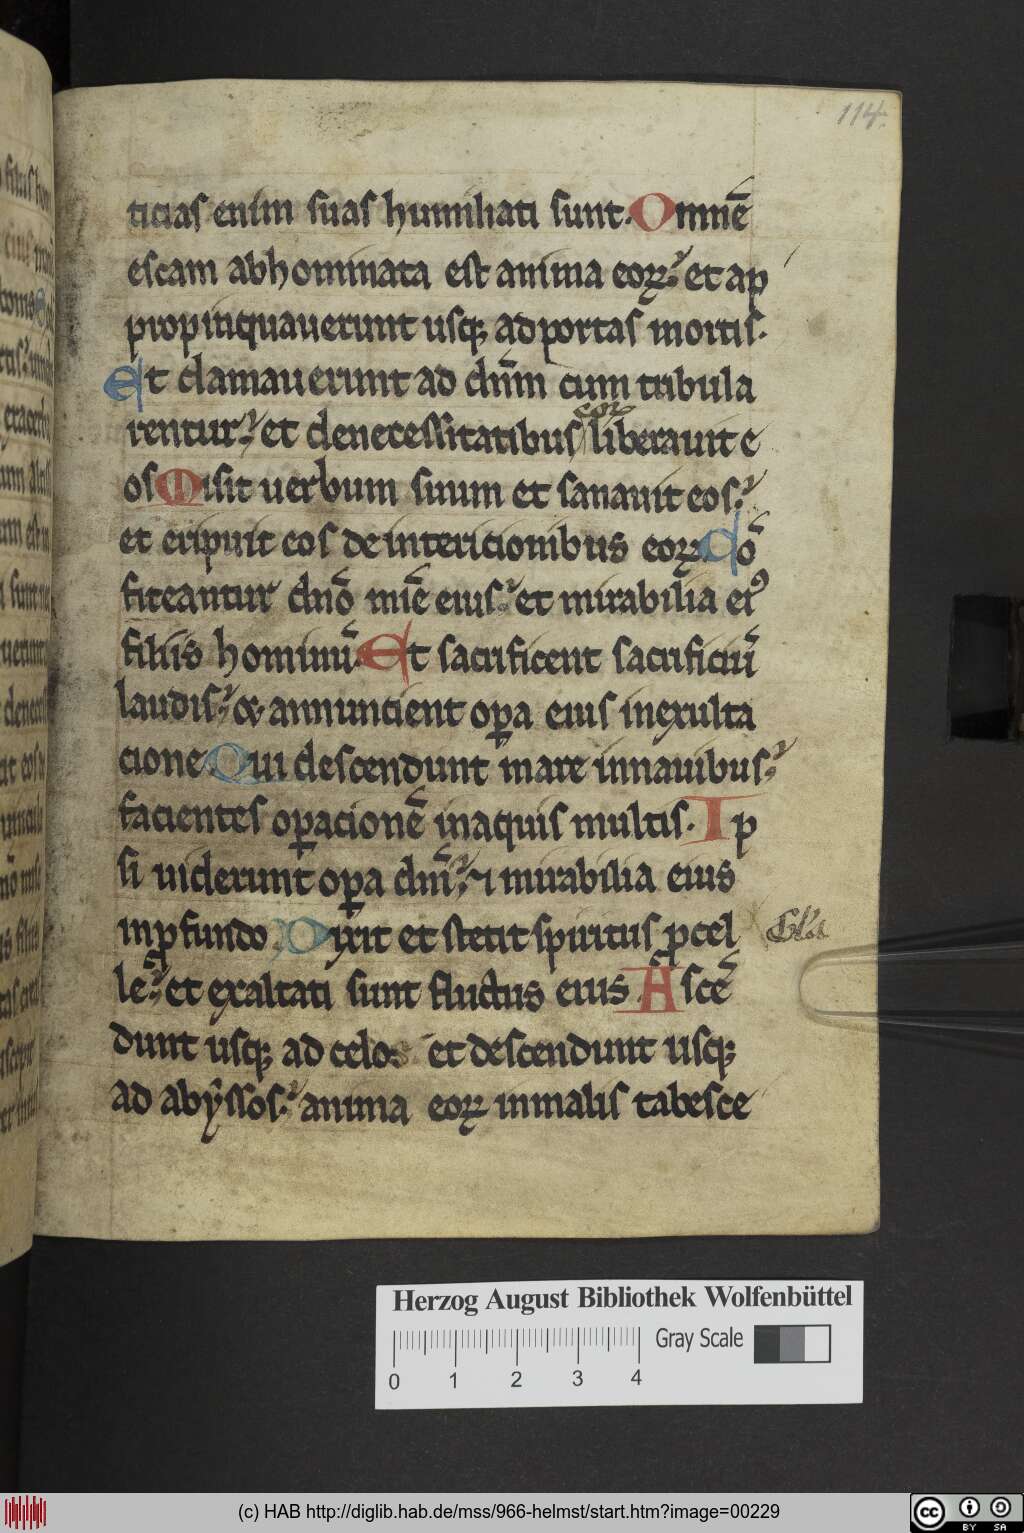 114.
ticias enim suas humiliati sunt. Omnē
escam abhominata est anima eoꝝ. et ap
propinquauerunt usqꝫ ad portas mortis.
Et clamauerunt ad dn̄m cum tribula
rentur. et de necessitatibus eoꝝ liberauit e
os Misit uerbum suum et sanauit eos.
et eripuit eos de intericionibus eoꝝ. Cō
fiteantur dn̄o mīe eius. et mirabilia ei᷒
filiis hominū. Et sacrificent sacrificiū
laudis. & annuncient oꝑa eius in exulta
cione. Qui descendunt mare in nauibus.
facientes oꝑacionē in aquis multis. Ip
si uiderunt oꝑa dn̄i. ⁊ mirabilia eius
in ꝓfundo. Dixit et stetit spiritus ꝓcel
le. et exaltati sunt fluctus eius. Ascē
dunt usqꝫ ad celos et descendunt usqꝫ
ad abyssos. anima eoꝝ in malis tabesce
Herzog August Bibliothek Wolfenbüttel
Gray Scale
0 1 2 3 4
(c) HAB http://diglib.hab.de/mss/966-helmst/start.htm?image=00229
cc BY SA